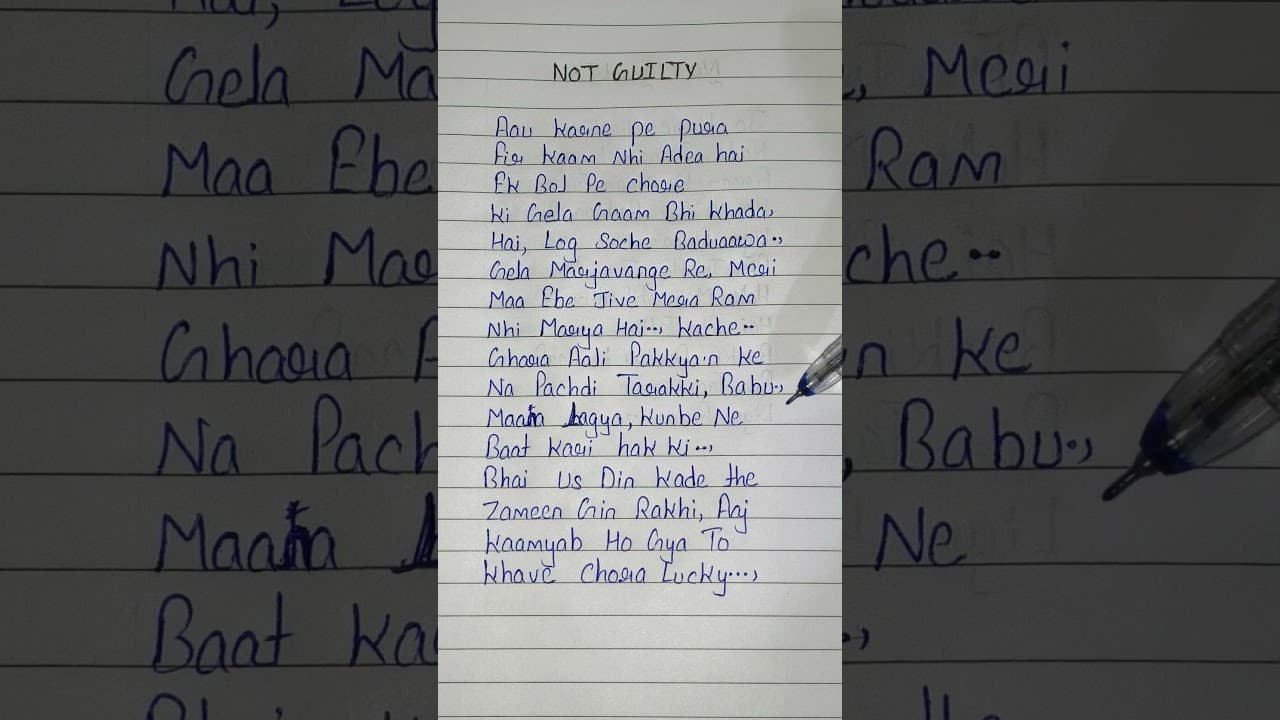 NOT GUILTY
Aau karne pe pura
Fir kaam Nhi Adea hai
Ek Bol Pe chore
ki Gela Gaam Bhi khada,
Hai, Log Soche Baduaawa..,
Gela Marjavange Re, Meri
Maa Ebe Jive Mera Ram
Nhi Marya Hai.., kache..
Ghara Aali Pakkya.n ke
Na Pachdi Tarakki, Babu..,
Lagya, kunbe Ne
Baat kari hak ki..,
Bhai us Din kade the
Zameen Gin Rakhi, Aaj
kaamyab Ho Gya To
khave chora Lucky...,